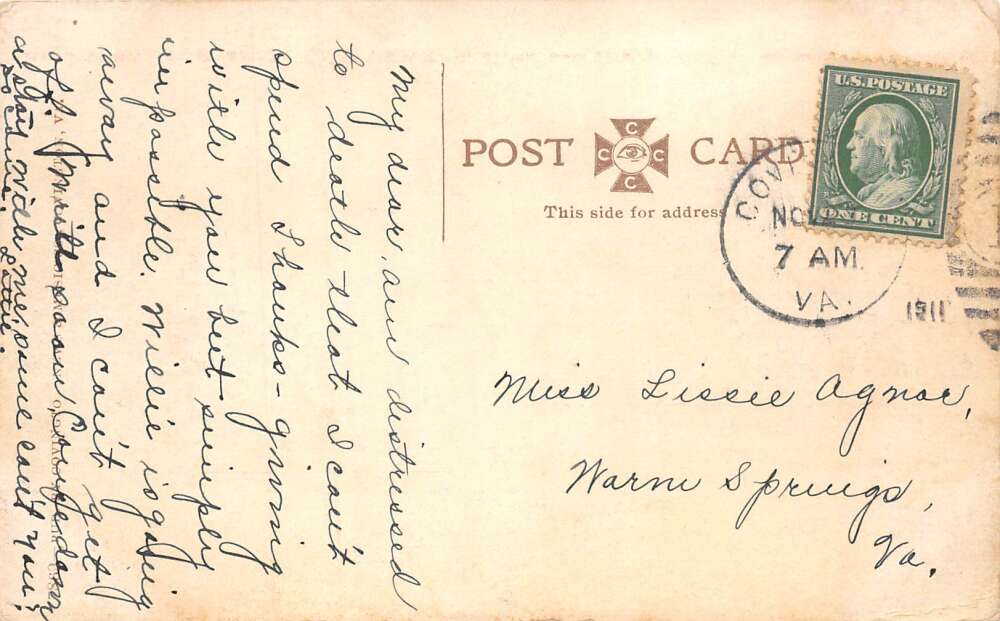 My dear, am distressed
to death that I can't
spend Thanks-giving
with you but simply
impossible. Willie is going
away and I can't get
off. Will soon,
a stay with me, can't you?
Do Lottie.
POST CARD
C C C C
This side for address
U.S. POSTAGE
ONE CENT
NOV
7 AM.
VA.
1911
Miss Lissie Agnor,
Warm Springs,
Va.